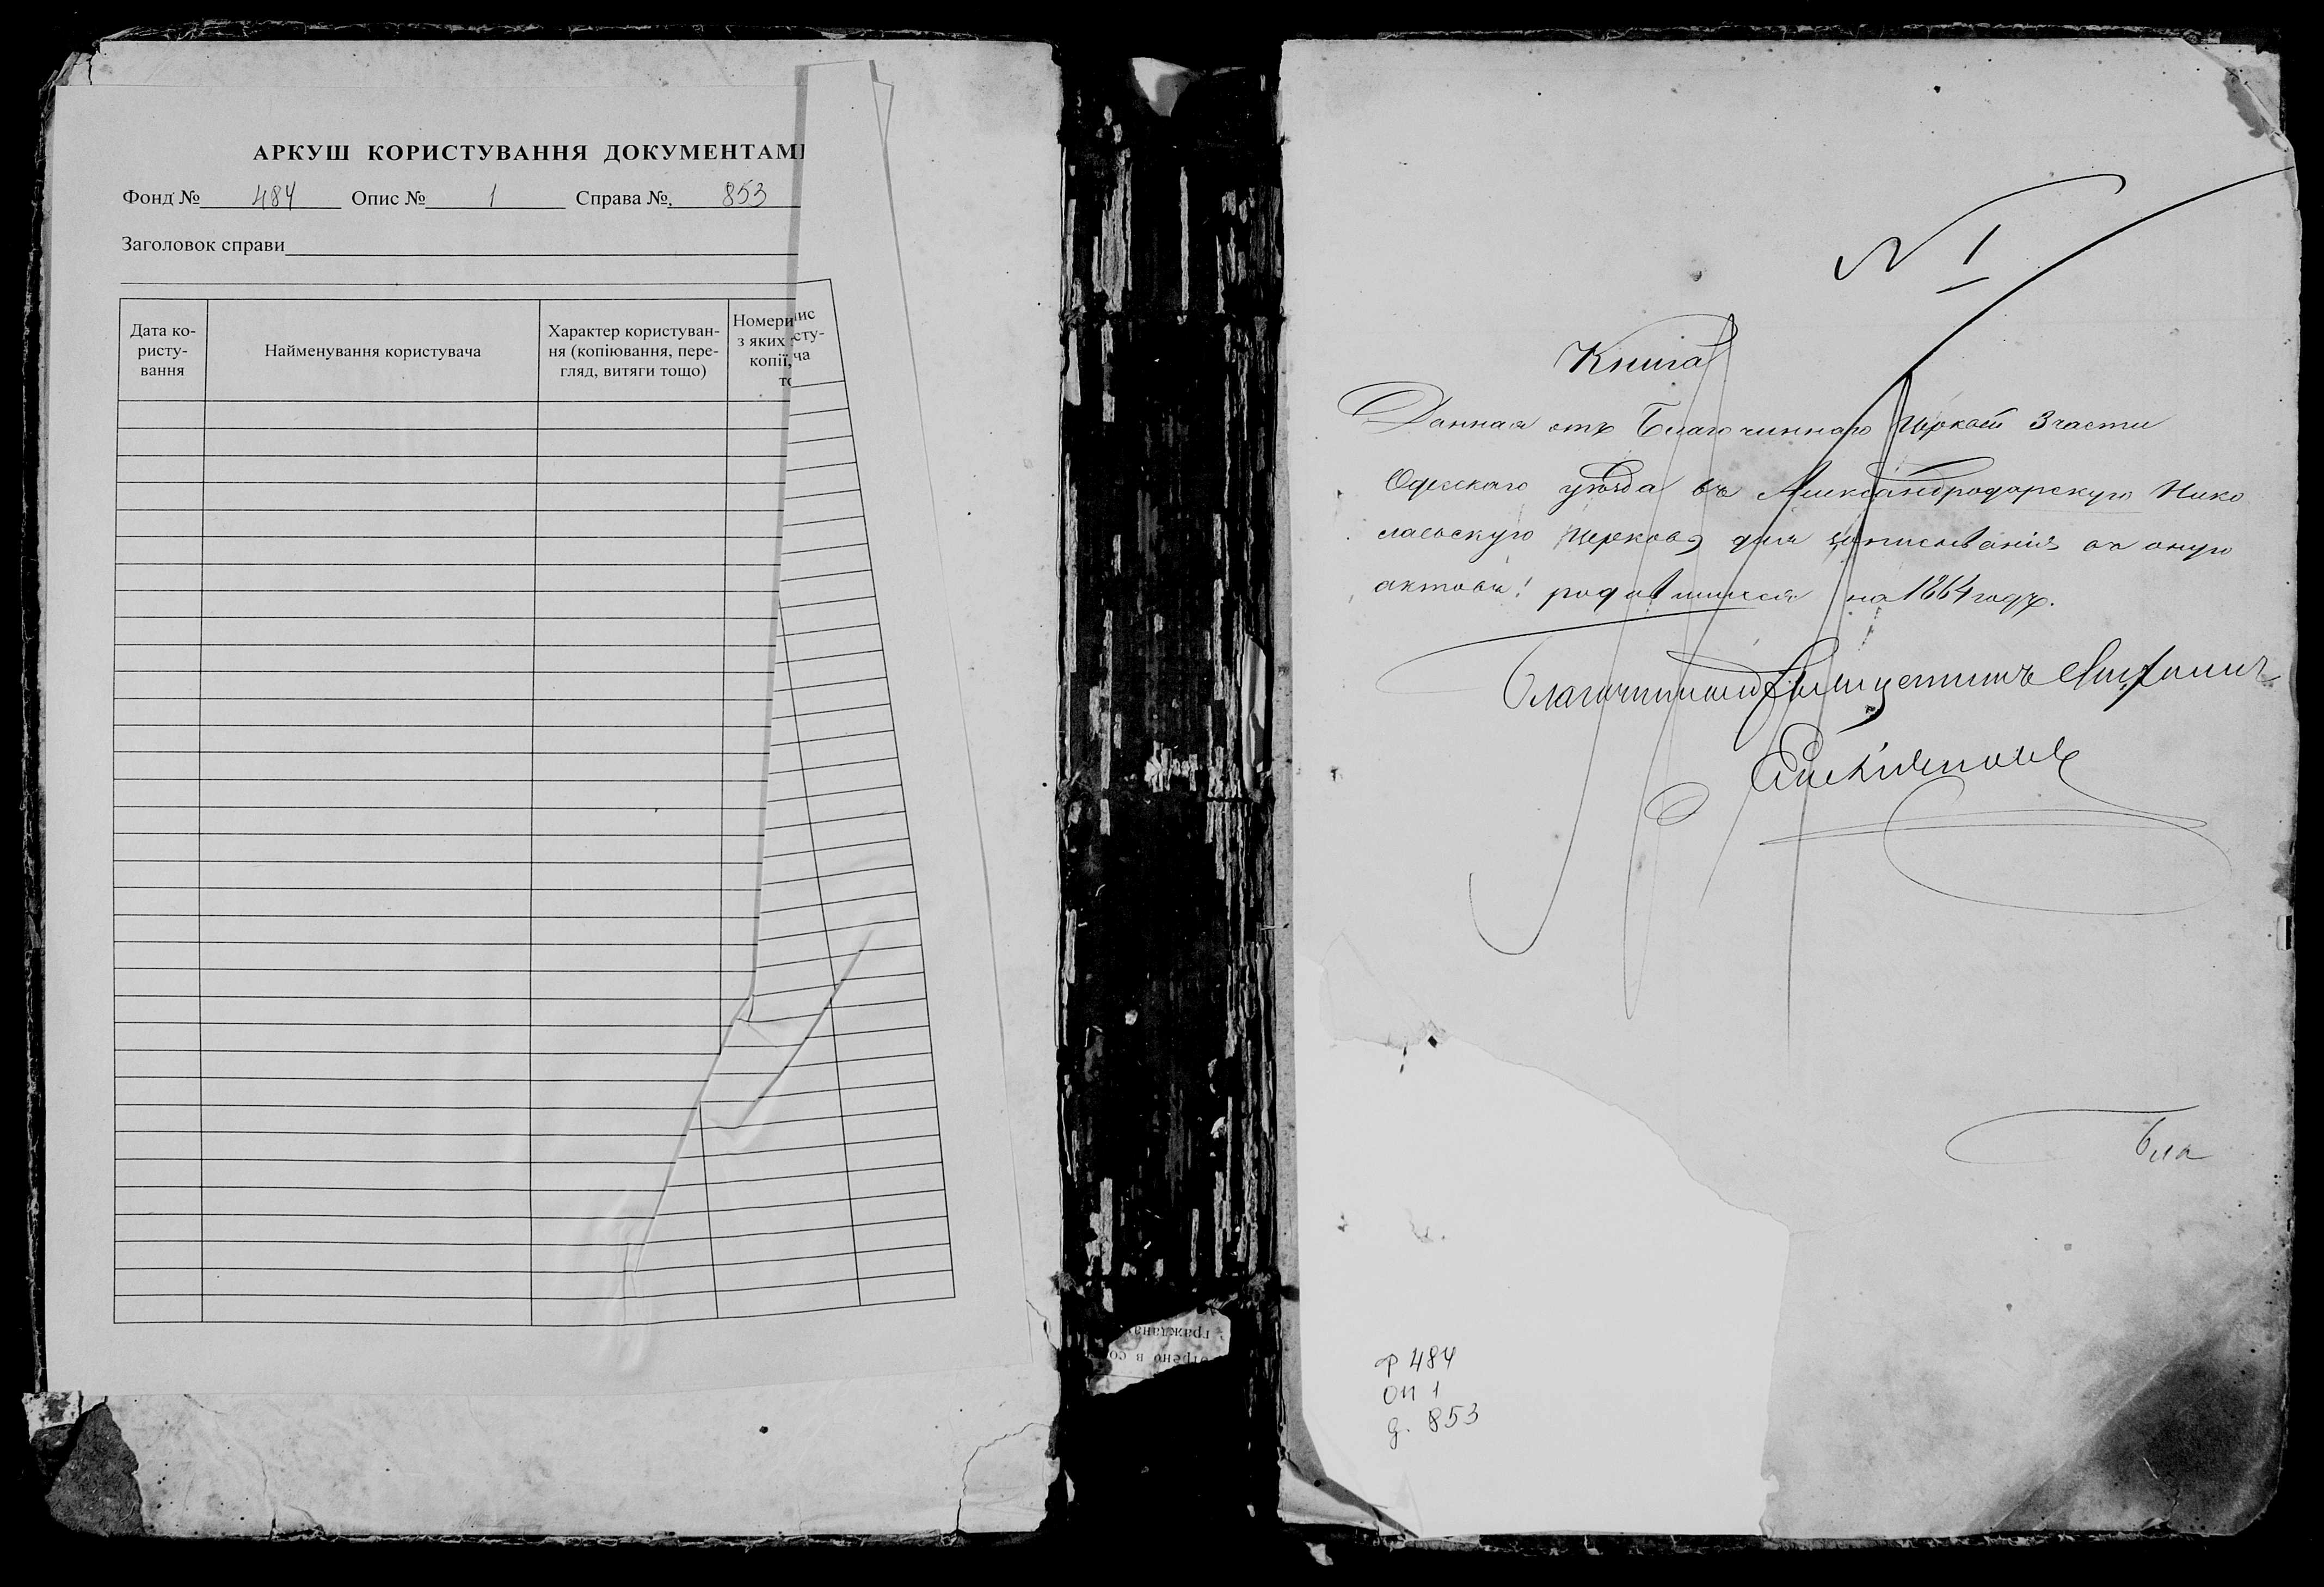 АРКУШ КОРИСТУВАННЯ ДОКУМЕНТАМИ
Фонд № 484 Опис № 1 Справа № 853
Заголовок справи
Дата ко-
ристу-
вання
Найменування користувача
Характер користуван-
ня (копіювання, пере-
гляд, витяги тощо)
Номери
з яких
копії,
то
ис
сту-
ча
граждана
отрено в со
N 1
Книга
Данная отъ Благочиннаго Церквей 3 части
Одесскаго уѣзда въ Александродарскую Нико
лаевскую Церковь для записыванія въ оную
актовъ: родившихся на 1864 годъ.
Благочинный
Бла
ф 484
оп 1
д. 853